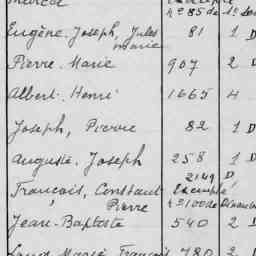 Marcel
n° 85 de 1e
Eugène, Joseph, Jules 81 1 D
Marie
Pierre Marie 907 2 D
Albert Henri 1665 4
Joseph, Pierre 82 1 D
Auguste, Joseph 258 1
2149 D
François, Constant Exempté
Pierre n° 100 de Dinan
Jean-Baptiste 540 2 D
Louis Marie François 780 2